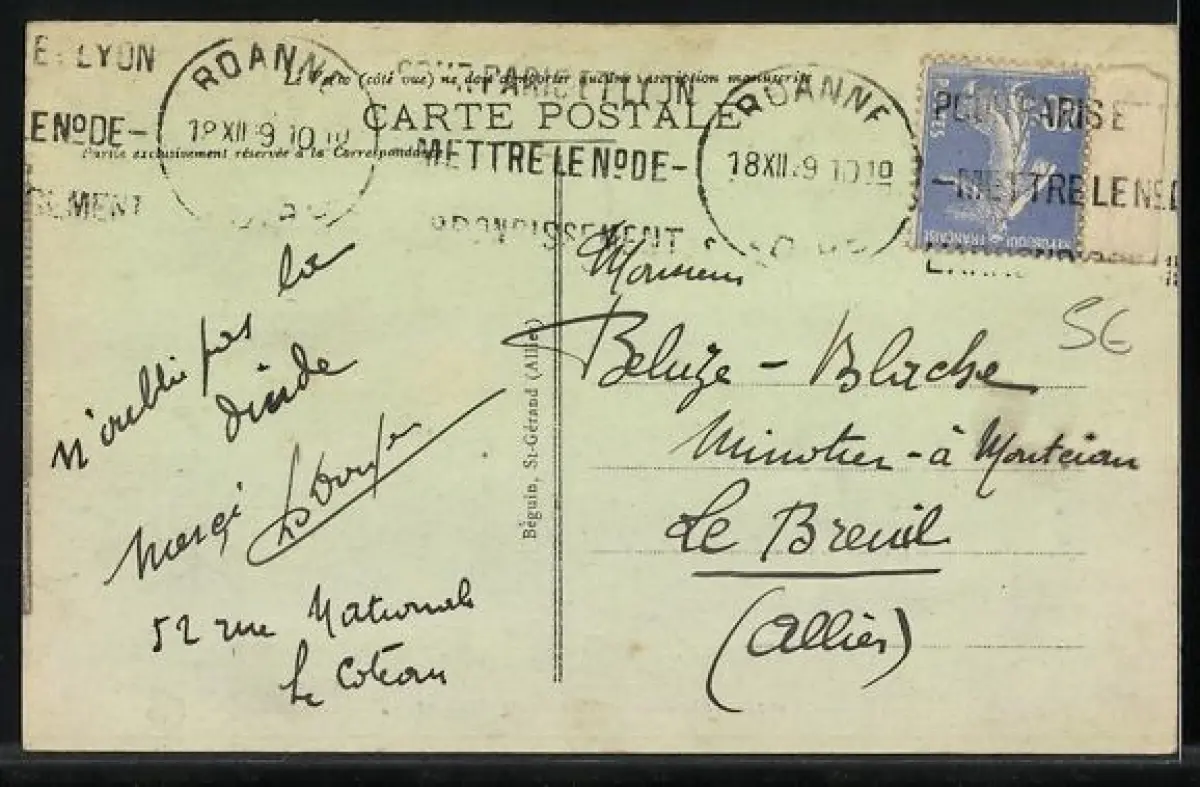 E. LYON
LE Nº DE –
ROANNE
18 XII 9 10 10
Le Verso (côté vue) ne doit comporter aucune inscription manuscrite
PARIS ET LYON
CARTE POSTALE
Partie exclusivement réservée à la Correspondance
METTRE LE Nº DE –
ARRONDISSEMENT
ROANNE
18 XII 9 10 10
POUR PARIS E
– METTRE LE Nº D
REPUBLIQUE FRANÇAISE
n'oublie pas la
dinde
Merçi
52 rue Nationale
Le Coteau
Béguin, St-Gérand (Allier)
Monsieur
Beluze – Blache
Minotier – à
Le Breuil
(Allier)
5€